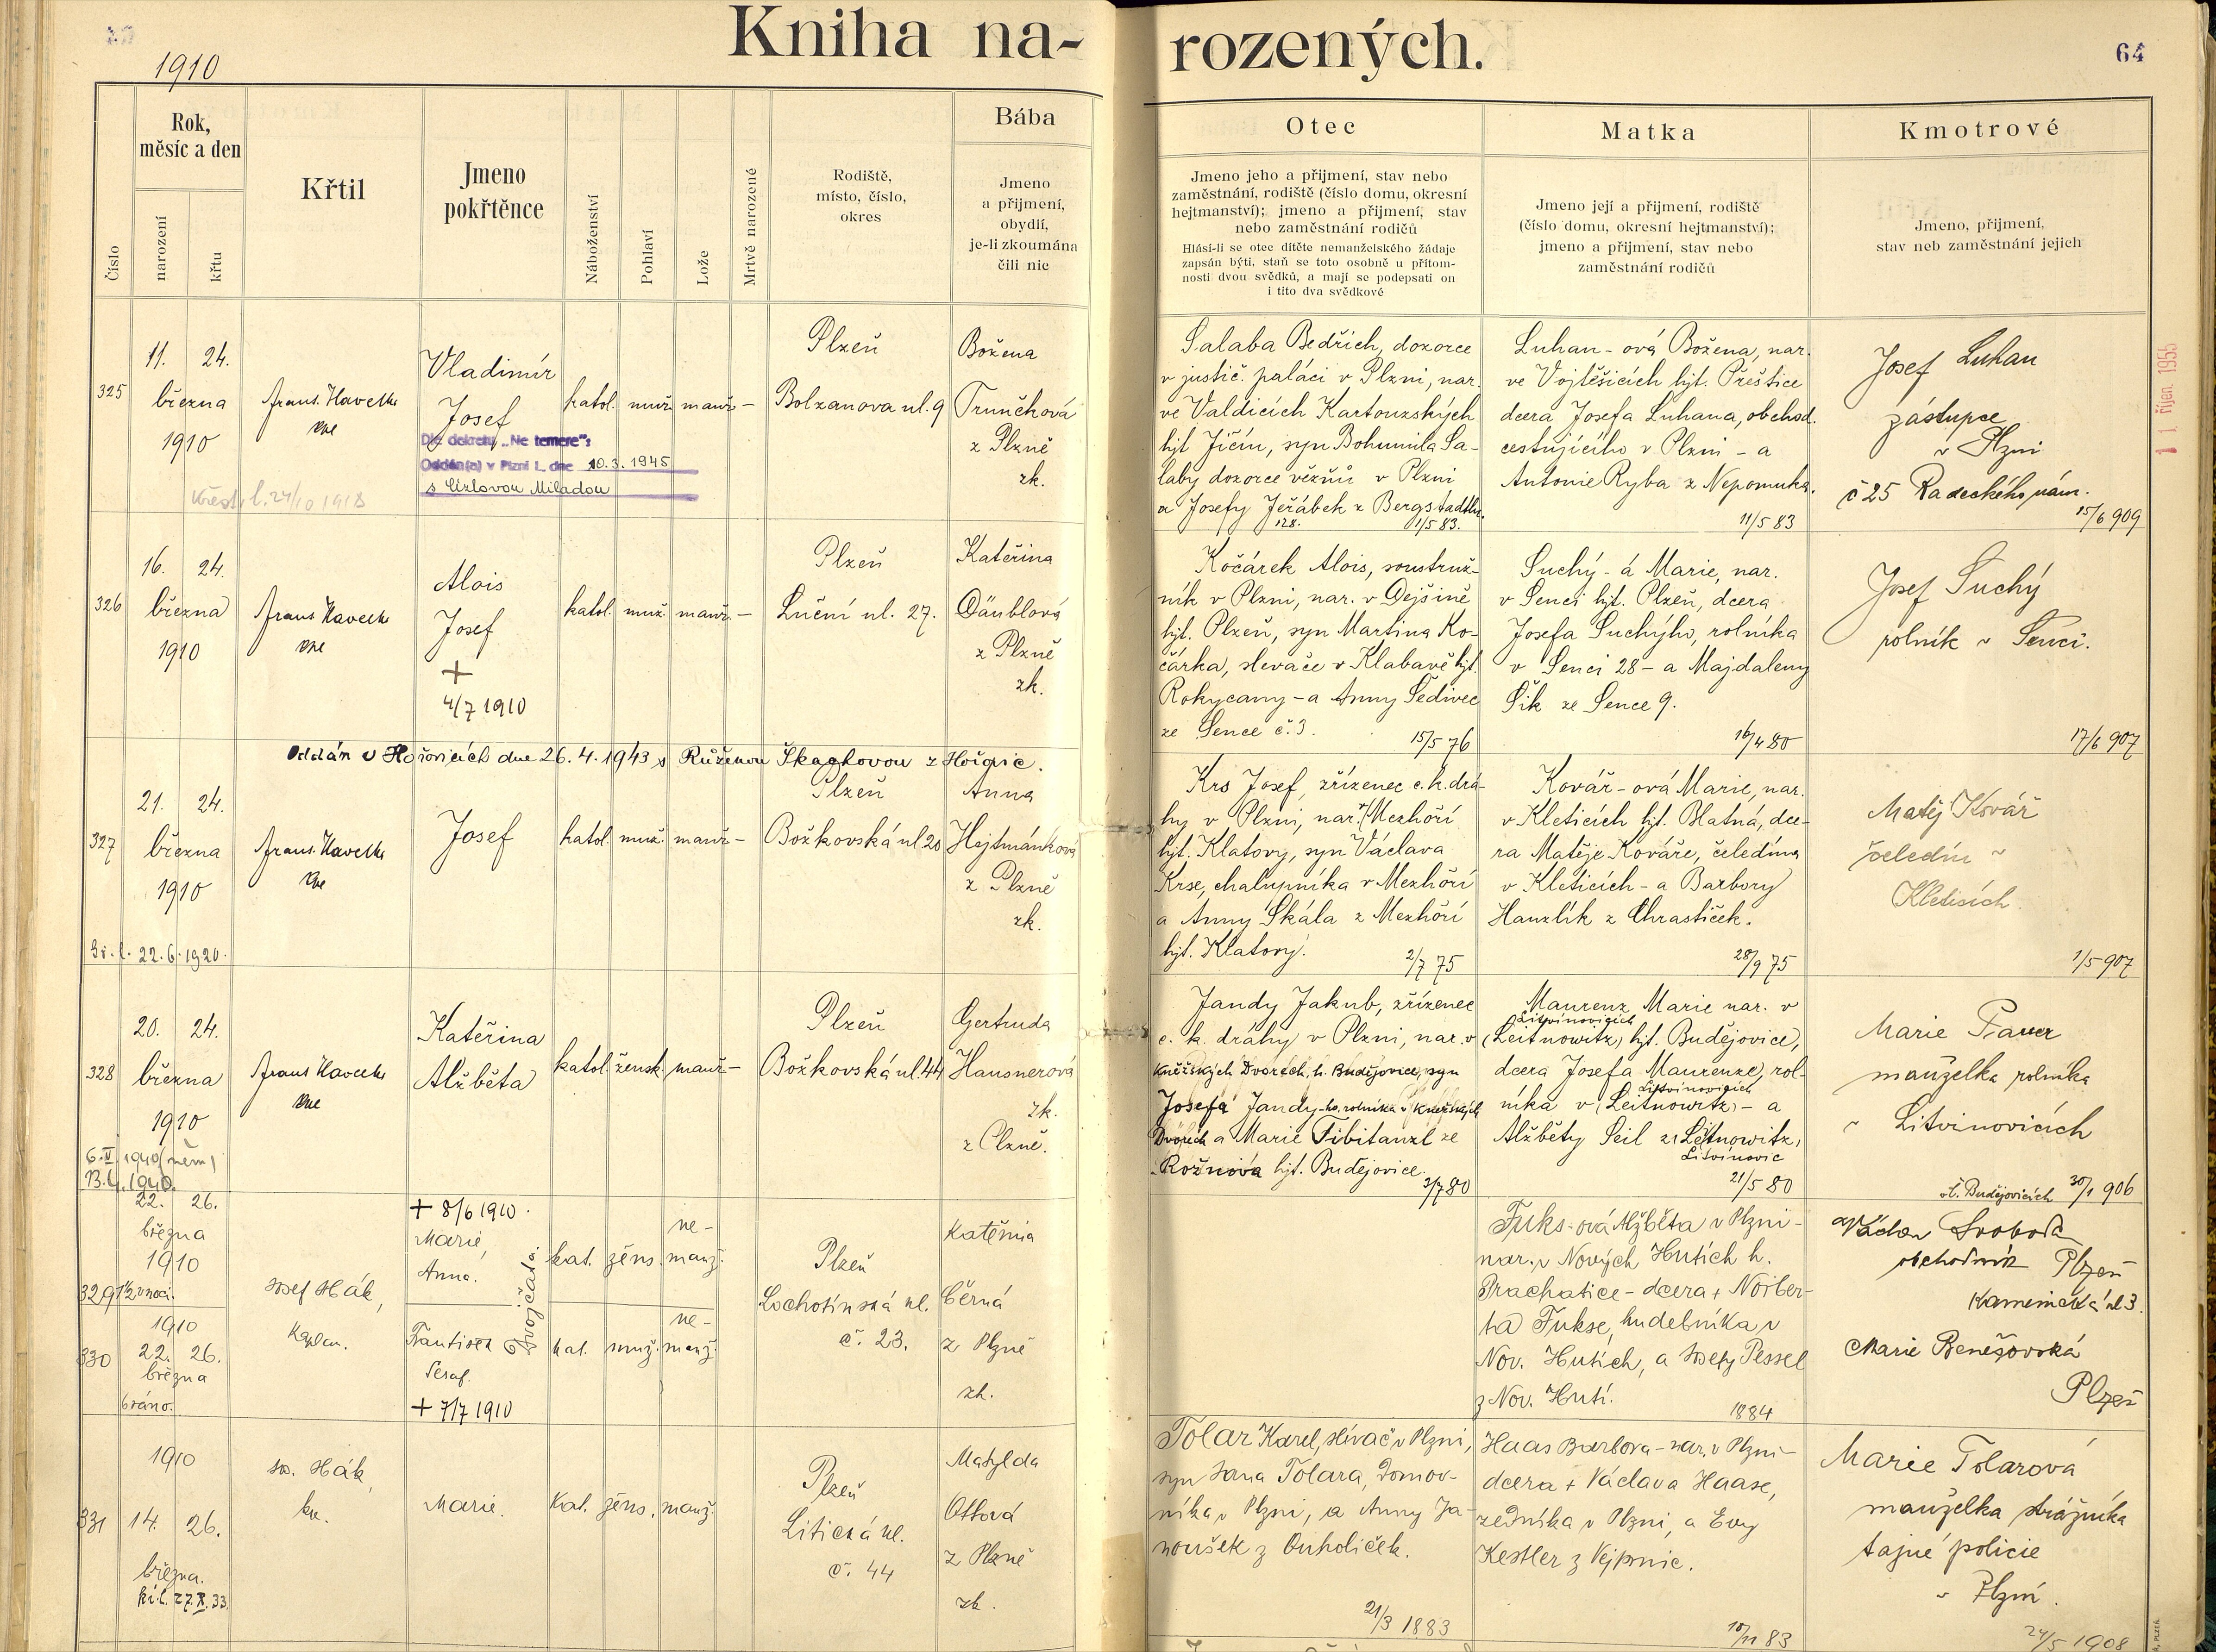 1910
Kniha na-
rozených.
64
Číslo
Rok,
měsíc a den
narození
křtu
Křtil
Jmeno
pokřtěnce
Náboženství
Pohlaví
Lože
Mrtvě narozené
Rodiště,
místo, číslo,
okres
Bába
Jmeno
a přijmení,
obydlí,
je-li zkoumána
čili nic
Otec
Jmeno jeho a přijmení, stav nebo
zaměstnání, rodiště (číslo domu, okresní
hejtmanství); jmeno a přijmení, stav
nebo zaměstnání rodičů
Hlásí-li se otec dítěte nemanželského žádaje
zapsán býti, staň se toto osobně u přítom-
nosti dvou svědků, a mají se podepsati on
i tito dva svědkové
Matka
Jmeno její a přijmení, rodiště
(číslo domu, okresní hejtmanství);
jmeno a přijmení, stav nebo
zaměstnání rodičů
Kmotrové
Jmeno, přijmení,
stav neb zaměstnání jejich
11 říjen 1955
325
11. 24.
března
1910
Křest. l. 24/10 1918
Frant. Havelka
kne
Vladimír
Josef
Dle dekretu „Ne temere“:
Oddán(a) v Plzni I. dne 10.3.1945
s Cizlovou Miladou
katol. muž. manž. –
Plzeň
Bolzanova ul. 9
Božena
Trunčková
z Plzně
zk.
Salaba Bedřich, dozorce
v justič. paláci v Plzni, nar.
ve Valdicích Kartouzských
hjt Jičín, syn Bohumila Sa-
laby dozorce vězňů v Plzni
a Josefy Jeřábek z Bergstadtlu.
128. 1/5 83.
Luhan-ová Božena, nar.
ve Vojtěšicích hjt. Přeštice
dcera Josefa Luhana, obchod.
cestujícího v Plzni – a
Antonie Ryba z Nepomuka.
11/5 83
Josef Luhan
zástupce
v Plzni
č 25 Radeckého nám.
15/6 909
326
16. 24.
března
1910
Frant. Havelka
kne
Alois
Josef
+
4/7 1910
katol. muž. manž. –
Plzeň
Luční ul. 27.
Kateřina
Däublová
z Plzně
zk.
Kočárek Alois, soustruž-
ník v Plzni, nar. v Dejšině
hjt. Plzeň, syn Martina Ko-
čárka, slevače v Klabavě hjt.
Rokycany – a Anny Šedivec
ze Sence č. 3.
15/5 76
Suchý-á Marie, nar.
v Senci hjt. Plzeň, dcera
Josefa Suchýho, rolníka
v Senci 28 – a Majdaleny
Šik ze Sence 9.
16/4 80
Josef Suchý
rolník v Senci.
17/6 907
Oddán v Hořovicích dne 26.4.1943 s Růženou
327
21. 24.
března
1910
22.6.1920.
Frant. Havelka
kne
Josef
katol. muž. manž. –
Plzeň
Božkovská ul 20
Anna
Hejtmánková
z Plzně
zk.
Krs Josef, zřízenec c. k. drá-
hy v Plzni, nar. v Mezhoří
hjt. Klatovy, syn Václava
Krse, chalupníka v Mezhoří
a Anny Skála z Mezhoří
hjt. Klatovy.
2/7 75
Kovář-ová Marie, nar.
v Kleticích hjt. Blatná, dce-
ra Matěje Kováře, čeledína
v Kleticích – a Barbory
Hanzlík z Chrastiček.
28/9 75
Matěj Kovář
čeledín v
Kleticích
1/5 907
328
20. 24.
března
1910
6. II. 1940 (něm)
13.4.1940.
Frant Havelka
kne
Kateřina
Alžběta
katol. žensk. manž. –
Plzeň
Božkovská ul. 44
Gertruda
Hausnerová
zk.
z Plzně.
Jandy Jakub, zřízenec
c. k. dráhy v Plzni, nar. v
Kněžských Dvorech, h. Budějovice, syn
Josefa Jandy-ho, rolníka v Kněžských
Dvorech a Marie Tibitanzl ze
Rožnova hjt. Budějovice.
3/7 80
Maurenz Marie nar. v
Litvinovicích
(Leitnowitz) hjt. Budějovice,
dcera Josefa Maurenze, rol-
Litvinovicích
níka v (Leitnowitz) – a
Alžběty Seil z (Leitnowitz)
Litvinovic
21/5 80
Marie Pauer
manželka rolníka
v Litvinovicích
ok. Budějovicích 30/1 906
329
22. 26.
března
1910
1/2 v noci.
Josef Hák,
Kaplan.
+ 8/6 1910.
Marie,
Anna.
Dvojčata:
kat. žens. ne-
manž.
Plzeň
Lochotínská ul.
č. 23.
Kateřina
Černá
z Plzně
zk.
Fuks-ová Alžběta v Plzni –
nar. v Nových Hutích h.
Prachatice – dcera + Norber-
ta Fukse, hudebníka v
Nov. Hutích, a Josefy Pessel
z Nov. Hutí.
1884
Václav Svoboda
obchodník Plzeň
Kamenická ul 3.
Marie Benešovská
Plzeň
330
1910
22. 26.
března
6 ráno.
František
Seraf.
+ 7/7 1910
kat. muž. ne-
manž.
331
1910
14. 26.
března.
kř. l. 27.X.33.
Jos. Hák,
kn.
Marie.
Kat. žens. manž.
Plzeň
Litická ul.
č. 44
Matylda
Ottová
z Plzně
zk.
Tolar Karel, slívač v Plzni,
syn Jana Tolara, domov-
níka v Plzni, a Anny Ja-
noušek z Ouholiček.
21/3 1883
Haas Barbora – nar. v Plzni –
dcera + Václava Haase,
zedníka v Plzni, a Evy
Kestler z Vejprnic.
10/11 83
Marie Tolarová
manželka strážníka
tajné policie
v Plzni.
24/5 1908